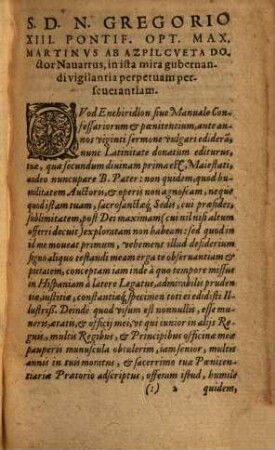 S. D. N. GREGORIO
XIII. PONTIF. OPT. MAX.
MARTINVS AB AZPILCVETA DO-
ctor Nauarrus, in ista mira gubernan-
di vigilantia perpetuam per-
seuerantiam.
QVod Enchiridion siue Manuale Con-
fessariorum & pœnitentium, ante an-
nos viginti sermone vulgari edideră,
nunc Latinitate donatum editurus,
tuæ, quæ secundum diuinam prima est, Maiestati,
audeo nuncupare B. Pater: non quidem, quod hu-
militatem Auctoris, & operis non agnoscam, neque
quod istam tuam, sacrosanctæq́; Sedis, cui præsides,
sublimitatem, post Dei maximam (cui nil nisi altum
offerri decuit) exploratam non habeam: sed quod in
id me moueat primum, vehemens illud desiderium
signo aliquo testandi meam erga te obseruantiam &
putatem, conceptam iam inde à quo tempore missus
in Hispaniam à latere Legatus, admirabilis pruden-
tiæ, iustitiæ, constantiæq́; specimen toti ei edidisti Il-
lustriss. Deinde quod visum est nonnullis, esse mu-
neris, ætatis, & officij mei, vt qui iunior in alijs Re-
gnis, multis Regibus, & Principibus officina meæ
pauperis munuscula obtulerim, iam senior, multis
annis in tui moratus, & sacerrimo tuæ Pœniten-
tiariæ Prætorio adscriptus, offeram istud, humile
(:) 2 quidem,